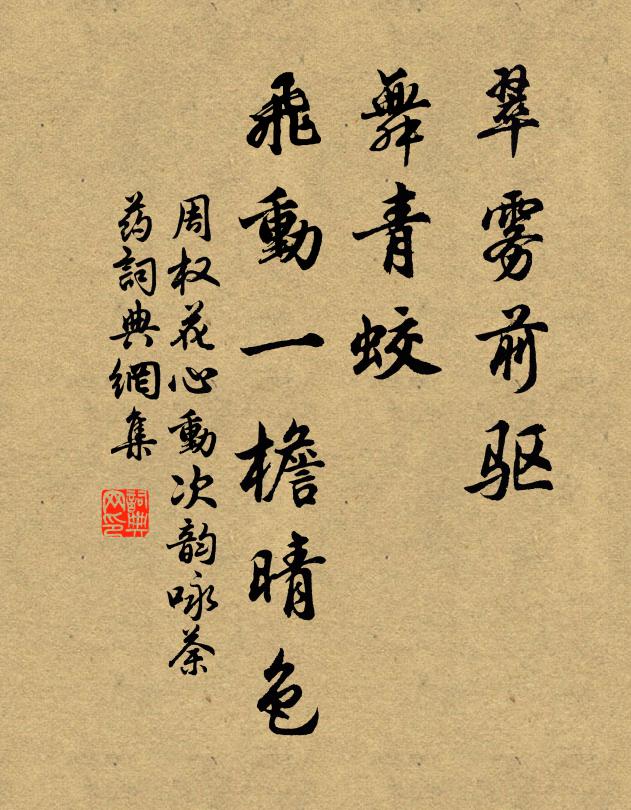 翠雾前驱
舞青蛟
飛動一檐晴色
周权花心動次韵咏茶
药詞典網集
詞典
网印